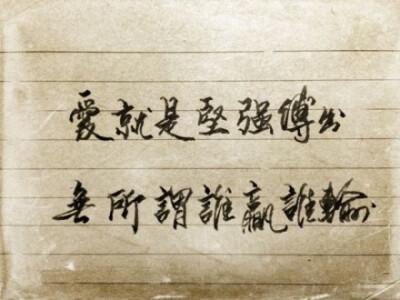 愛就是堅强傅出
無所謂誰贏誰輸